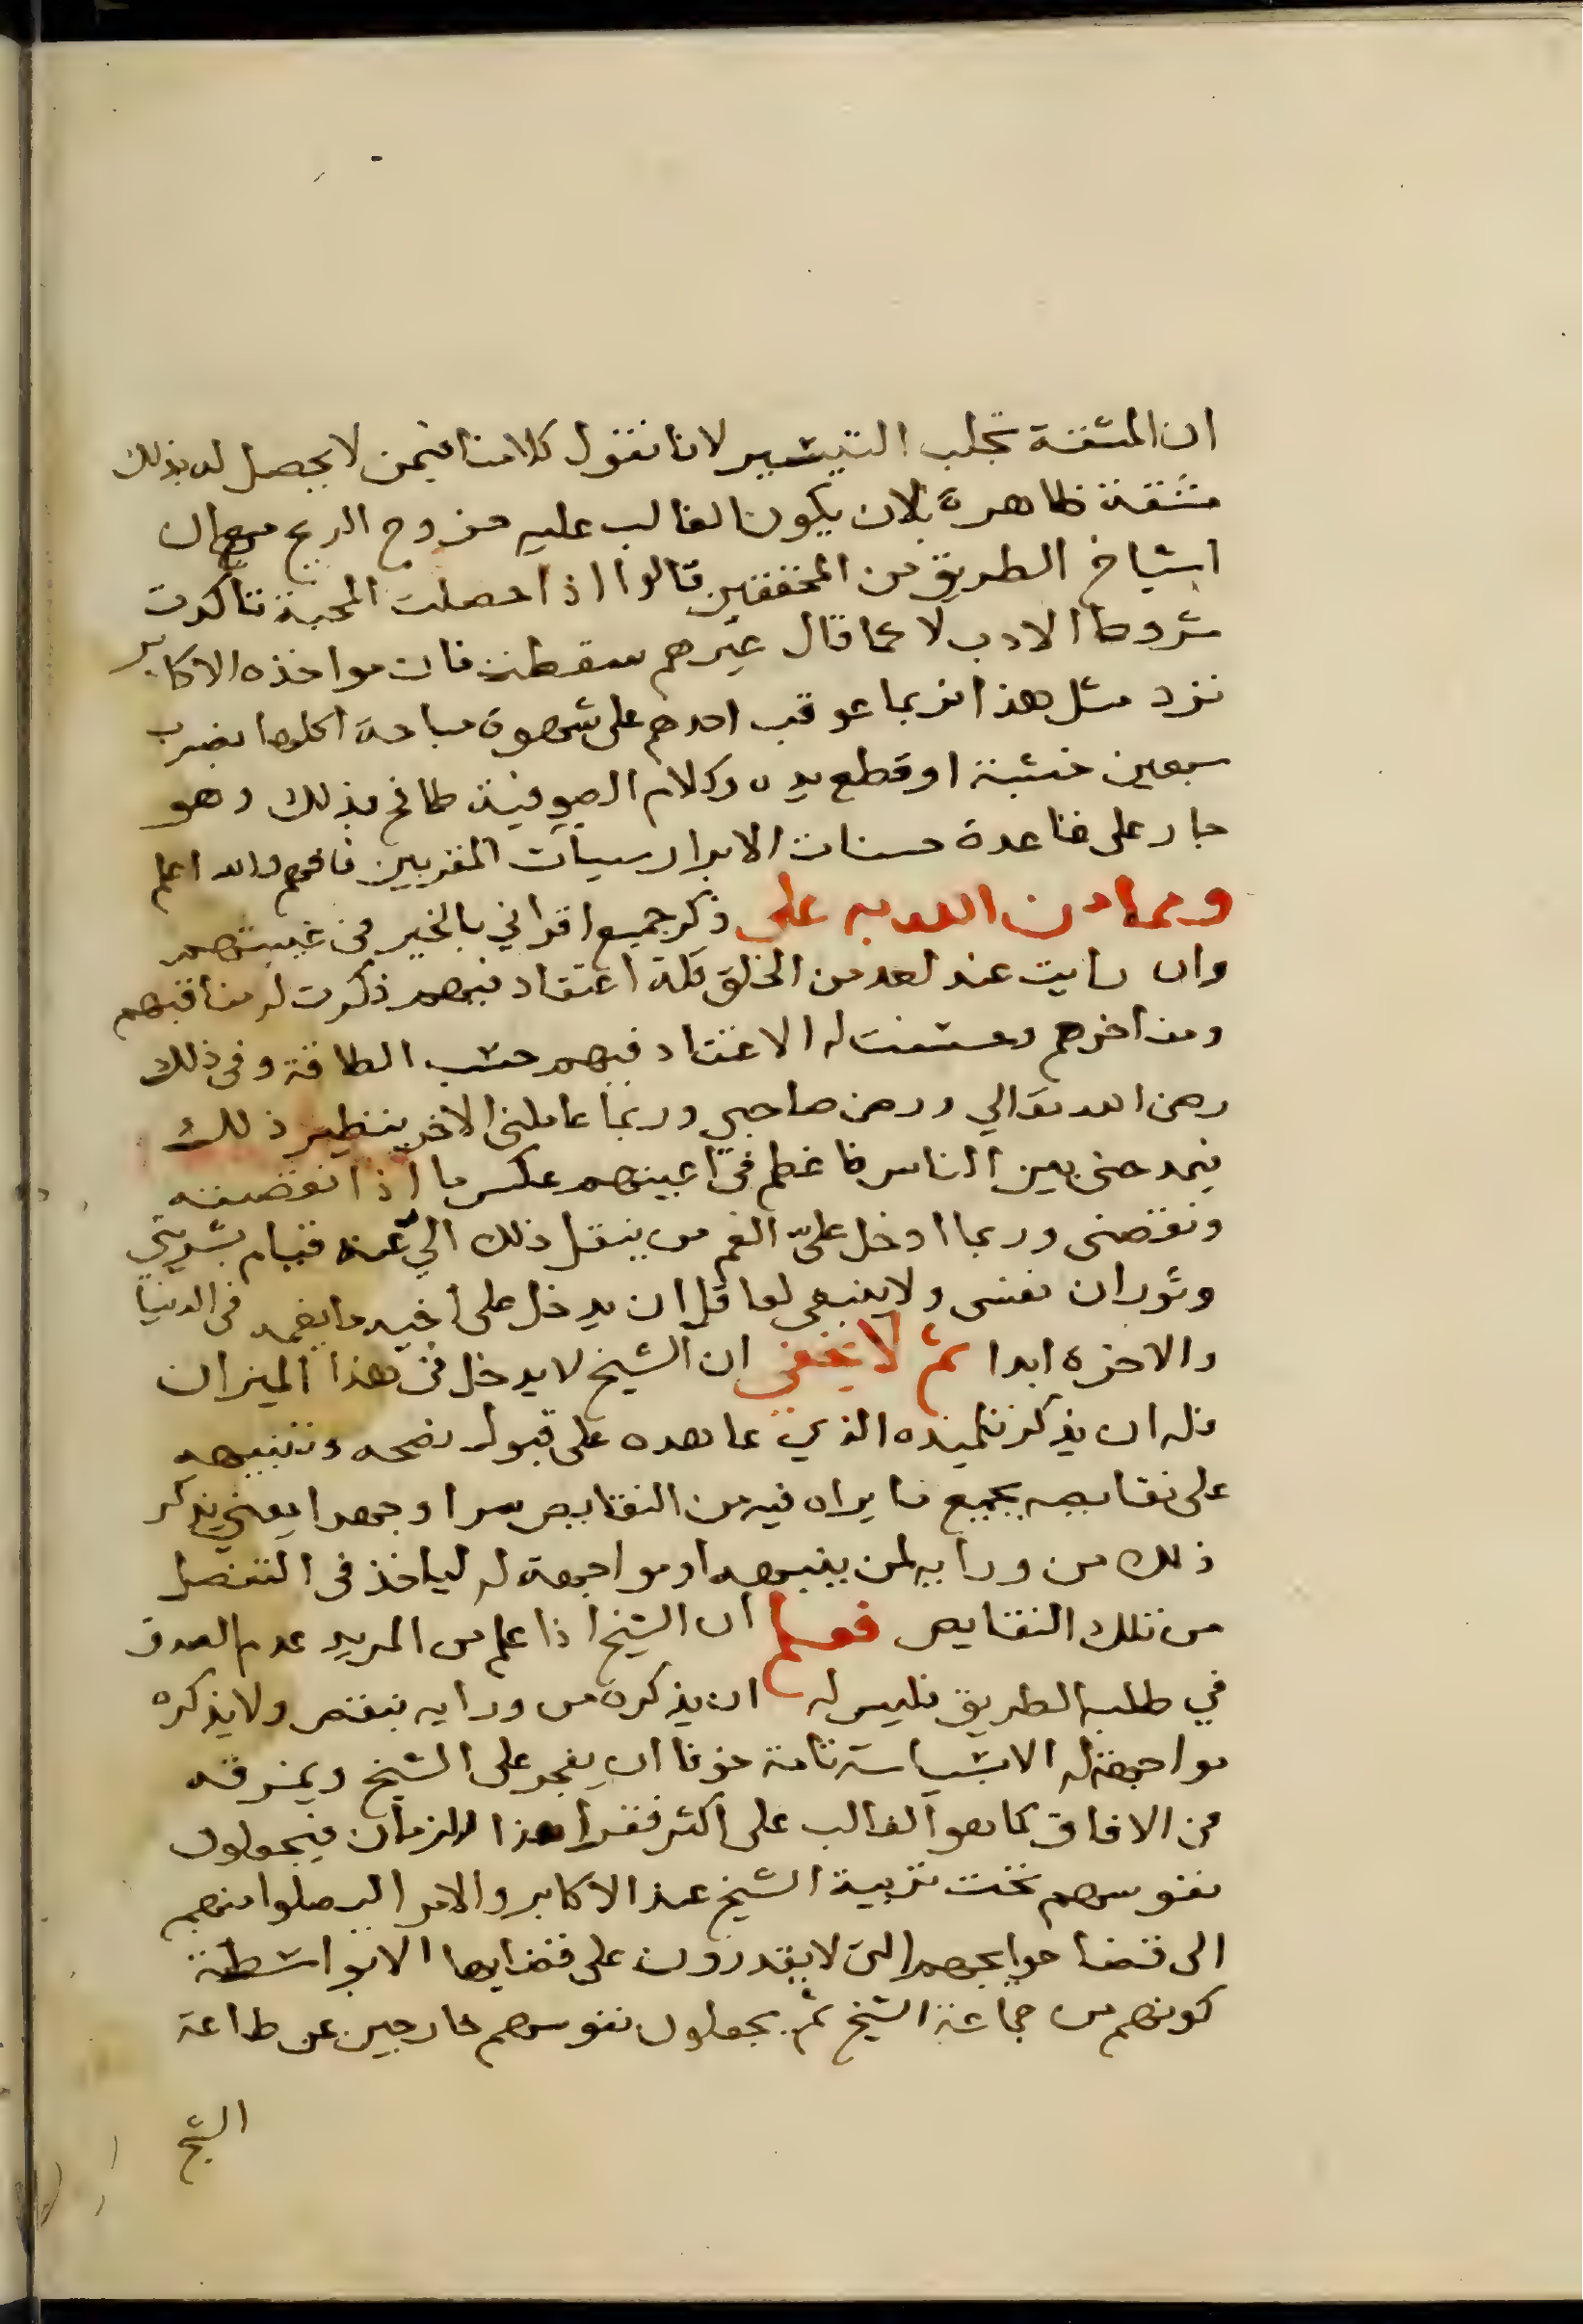 ان المشقة تجلب التيسير لانا نقول كلامنا فيمن لا يحصل له بذلك
مشقة ظاهرة بلان يكون الغالب عليه خروج الريح مع ان
اشياخ الطريق من المحققين قالوا اذا حصلت المحبة تاكدت
شروط الادب لا كما قال غيرهم سقطت فان مواخذه الاكابر
ترد مثل هذا فربما عوقب احدهم على شهوة مباحة اكلها بضرب
سبعين خشبة او قطع يده وكلام الصوفية طافح بذلك وهو
جار على قاعدة حسنات الابرار سيات المقربين فافهم والله اعلم
ومما من الله به على ذكر جميع اقراني بالخير في غيبتهم
وان رايت عند احد من الخلق قلة اعتقاد فيهم ذكرت له مناقبهم
ومفاخرهم وحسنت له الاعتقاد فيهم حسب الطاقة وفي ذلك
رضى الله تعالي ورضى صاحبي وربما عاملني الاخر بنظير ذلك
فيمدحني بين الناس فاعظم في اعينهم عكس ما اذا نقصته
ونقصني وربما ادخل علىّ الغم من ينقل ذلك اليّ عنه قيام بشريتي
وثوران نفسي ولا ينبغي لعاقل ان يدخل على اخيه ما يغمه في الدنيا
والاخره ابدا ثم لا يخفي ان الشيخ لا يدخل في هذا الميزان
فله ان يذكر تلميذه الذي عاهده على قبول نصحه وتنبيهه
على نقايصه بجميع ما يراه فيه من النقايص سرا وجهرا يعني يذكر
ذلك من ورايه لمن ينبهه او مواجهة له لياخذ في التنصل
من تلك النقايص فعلم ان الشيخ اذا علم من المريد عدم الصدق
في طلب الطريق فليس له ان يذكره من ورايه بنقص ولا يذكره
مواجهة له الا بسياسة تامة خوفا ان يفجر على الشيخ ويمزقه
في الافاق كما هو الغالب على اكثر فقرا هذا الزمان فيجعلون
نفوسهم تحت تربية الشيخ عند الاكابر والامرا ليصلوا منهم
الى قضا حوايجهم التي لا يقدرون على قضايها الا بواسطة
كونهم من جماعة الشيخ ثم يجعلون نفوسهم خارجين عن طاعة
الشيخ